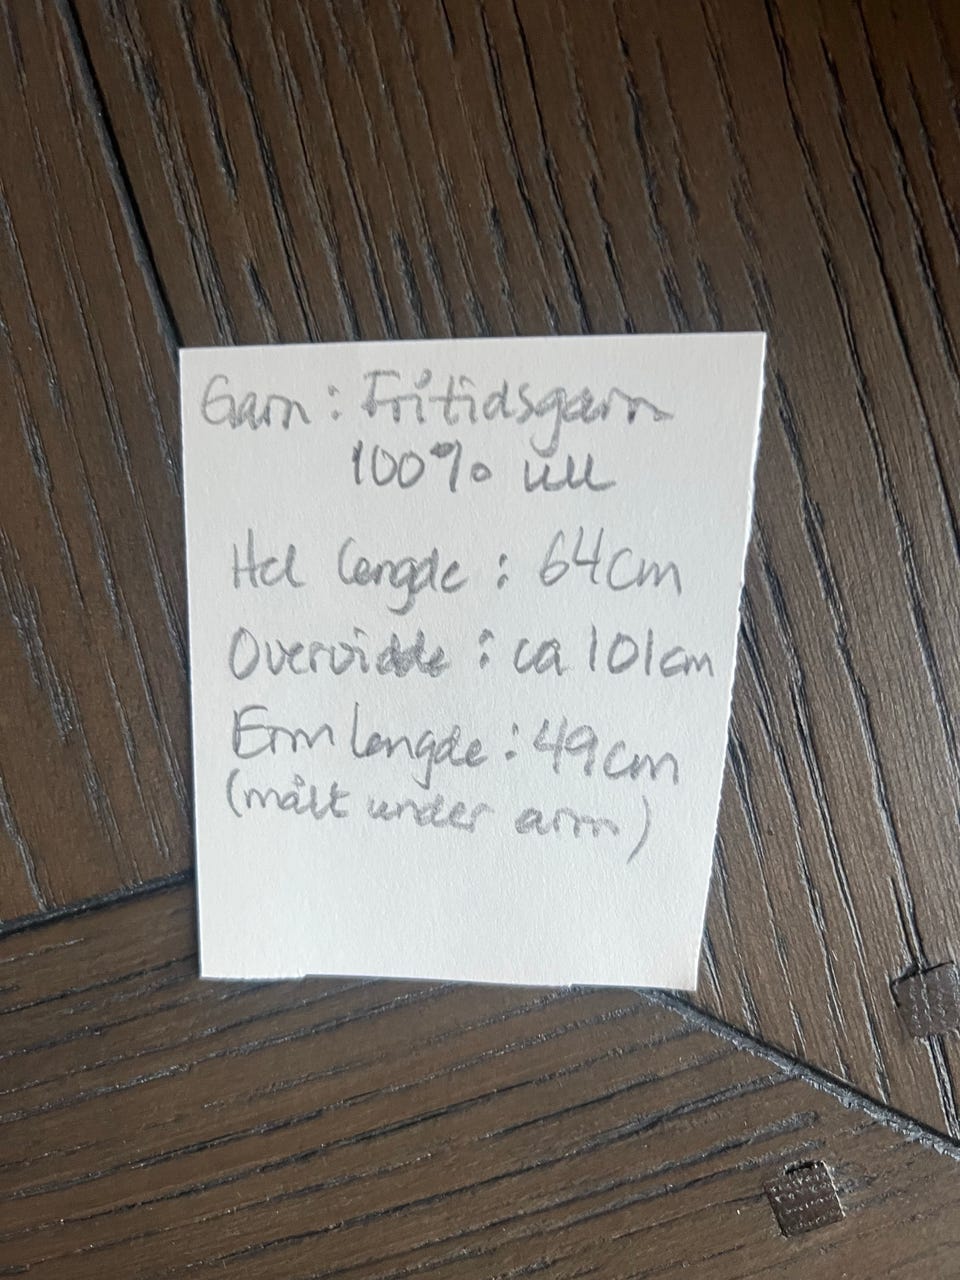 Garn: Fritidsgarn
100% ull
Hel lengde: 64cm
Overvidde: ca 101cm
Erm lengde: 49cm
(målt under arm)